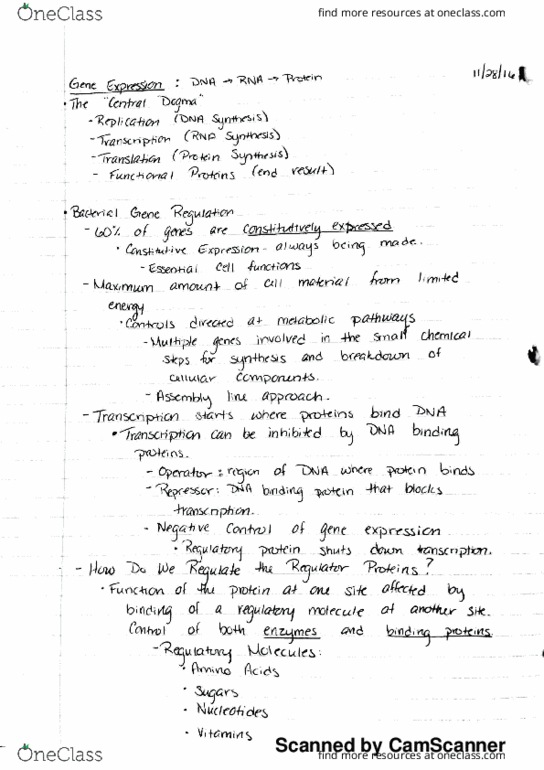 OneClass
find more resources at oneclass.com
11/28/16
Gene Expression : DNA → RNA → Protein
• The "Central Dogma"
- Replication (DNA Synthesis)
- Transcription (RNA Synthesis)
- Translation (Protein Synthesis)
- Functional Proteins (end result)
• Bacterial Gene Regulation
- 60% of genes are constitutively expressed
• Constitutive Expression - always being made.
- Essential cell functions
- Maximum amount of cell material from limited
energy
• Controls directed at metabolic pathways
- Multiple genes involved in the small chemical
steps for synthesis and breakdown of
cellular components.
- Assembly line approach.
- Transcription starts where proteins bind DNA
• Transcription can be inhibited by DNA binding
proteins.
- Operator : region of DNA where protein binds
- Repressor: DNA binding protein that blocks
transcription.
- Negative Control of gene expression
• Regulatory protein shuts down transcription.
- How Do We Regulate the Regulator Proteins?
• Function of the protein at one site affected by
binding of a regulatory molecule at another site.
Control of both enzymes and binding proteins
- Regulatory Molecules:
• Amino Acids
• Sugars
• Nucleotides
• Vitamins
Scanned by CamScanner
OneClass
find more resources at oneclass.com